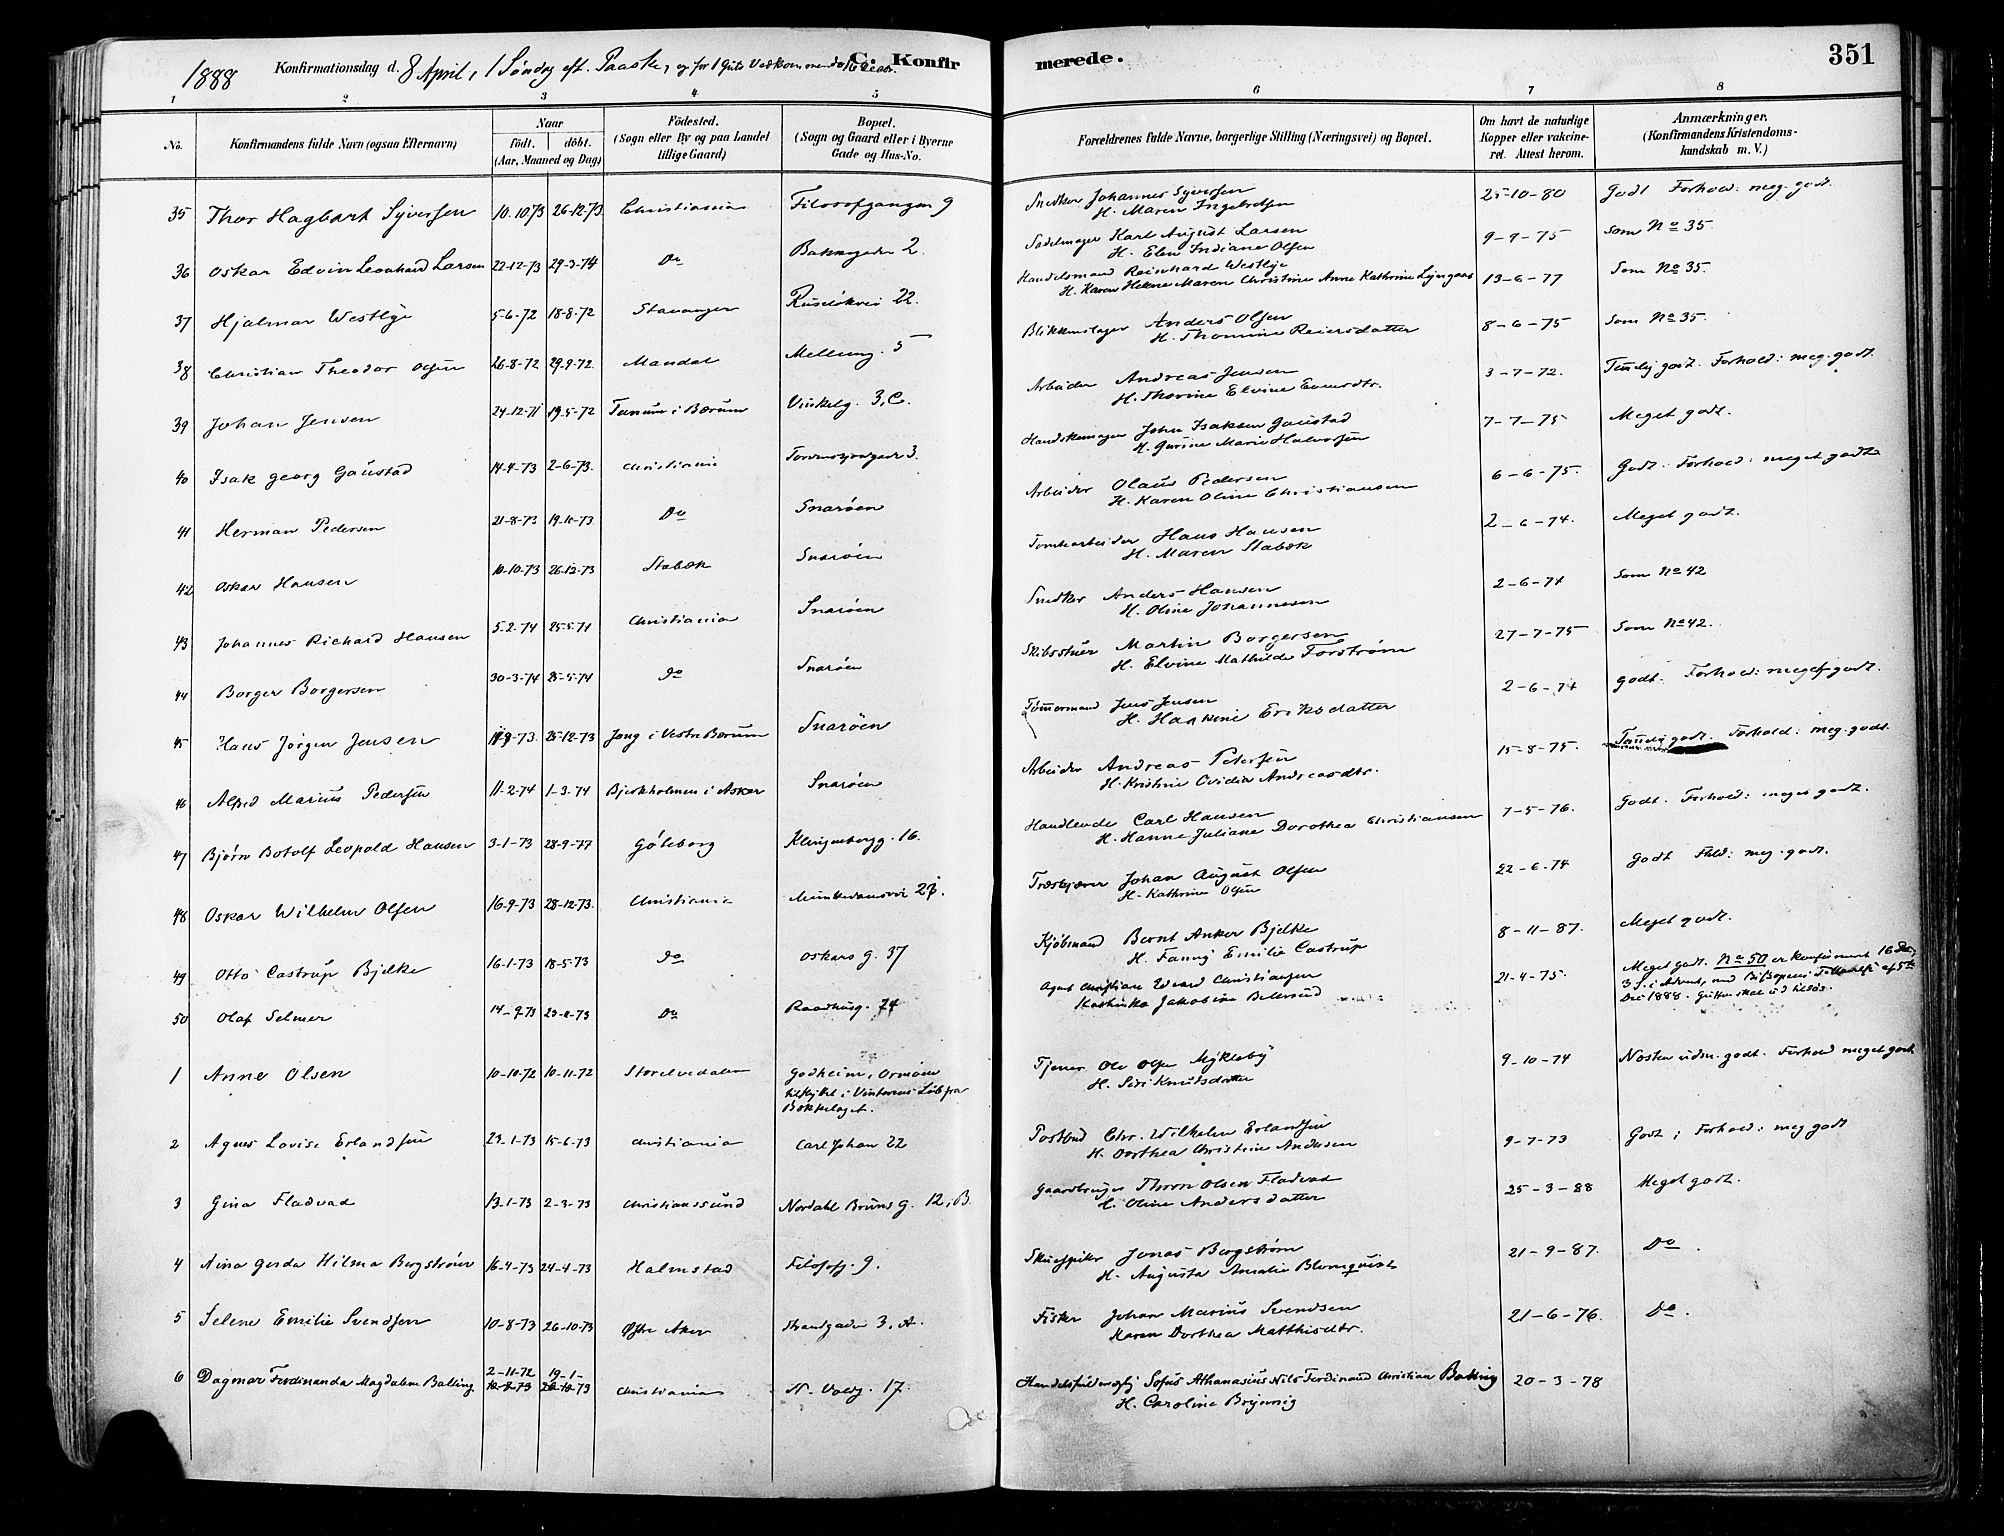 1888 Konfirmationsdag d. 8 April, 1 Søndag eft. Paaske, og for 1 Guts Vedkommende 16 Decbr. C. Konfirmerede. 351
1 2 3 4 5 6 7 8
No. Konfirmandens fulde Navn (ogsaa Efternavn) Naar født. døbt. (Aar, Maaned og Dag) Fødested. (Sogn eller By og paa Landet tillige Gaard) Bopæl. (Sogn og Gaard eller i Byerne Gade og Hus-No. Forældrenes fulde Navne, borgerlige Stilling (Næringsvei) og Bopæl. Om havt de naturlige Kopper eller vakcineret. Attest herom. Anmærkninger. (Konfirmandens Kristendomskundskab m. V.)
35 Thor Hagbart Syversen 10.10.73 26-12-73 Christiania Filosofgangen 9 Snedker Johannes Syversen H. Maren Ingebretsen 25-10-80 Godt Forhold: meg. godt.
36 Oskar Edvin Leonhard Larsen 22-12-73 29-3-74 Do Bakkegaden 2 Sadelmager Karl August Larsen H. Elen Indiane Olsen 9-9-75 som No 35.
37 Hjalmar Westlye 5-6-72 18-8-72 Stavanger Ruseløkvei 22. Handelsmand Reinhard Westlye H. Karen Helene Maren Christine Anne Kathrine 13-6-77 Som No 35.
38 Christian Theodor Olsen 26-8-72 29-9-72 Mandal Mellemg. 5 Blikkenslager Anders Olsen H. Thomine Reiersdatter 8-6-75 Som No 35.
39 Johan Jensen 24-12-71 19-5-72 Tanum i Bærum Vinkelg. 3, C. Arbeider Andreas Jensen H. Thorine Elvine Evensdtr. 3-7-72. Temlig godt. Forhold: meg. godt.
40 Isak Georg Gaustad 14-4-73 2-6-73. Christiania 3. Handskemager John Isaksen Gaustad H. Gurine Marie Halvorsen 7-7-75 Meget godt.
41 Herman Pedersen 21-8-73 19-10-73. Do Snarøen Arbeider Olaus Pedersen H. Karen Oline Christiansen 6-6-75. Godt. Forhold: meget godt
42 Oskar Hansen 10-10-73 26-12-73 Stabæk Snarøen Tomtearbeider Hans Hansen H. Maren Stabæk 2-6-74. Meget godt.
43 Johannes Richard Hansen 5-2-74 25-5-74 Christiania Snarøen Snedker Anders Hansen H. Oline Johannesen 2-6-74 Som No 42
44 Borger Borgersen 30-3-74 25-5-74 do Snarøen Skibsstuer Martin Borgersen H. Elvine Mathilde Forstrøm 27-7-75 Som No 42.
45 Hans Jørgen Jensen 73. 25-12-73 Jong i Vestre Bærum Snarøen Tømmermand Jens Jensen H. Eriksdatter 2-6-74 godt. Forhold: meget godt.
46 Alfred Marius Pedersen 11-2-74 1-3-74 Bjerkholmen i Asker Snarøen Arbeider Andreas Petersen H. Kristine Ovidia Andreasdtr. 15-8-75. Temlig godt. Forhold: meg. godt.
47 Bjørn Botolf Leopold Hansen 3-1-73 28-9-77 Gøteborg Klingenbergg. 16. Handlende Carl Hansen H. Hanne Juliane Dorothea Christiansen 7-5-76. Godt. Forhold: meget godt.
48 Oskar Wilhelm Olsen 16-9-73 28-12-73. Christiania Munkedamsvei Træskjærer Johan August Olsen H. Kathrine Olsen 22-6-74 Godt Fhld: meg. godt.
49 Otto Castrup Bjelke 16-1-73 18-5-73 do Oskars g. 37 Kjøbmand Bernt Anker Bjelke H. Fanny Emilie Castrup 8-11-87. Meget godt.
50 Olaf Selmer 14-9-73 73 Do Raadhusg. 24 Agent Christian Edvard Christiansen Kathinka Jakobine 21-4-75. Meget godt. No 50 er konfirmeret 16 Dec., 3 S. i Advent, med Biskopens Tilladelse af 5te Dec 1888.
1 Anne Olsen 10-10-72 10-11-72 Storelvedalen Godheim, Ormøen tilflyttet i Vinterens Løb fra Bækkelaget. Tjener Ole Olsen Mykleby H. Siri Knutsdatter 9-10-74 Næsten udm. godt. Forhold meget godt.
2 Agnes Lovise Erlandsen 23-1-73 15-6-73 Christiania Carl Johan 22 Postbud Chr. Wilhelm Erlandsen H. Dorthea Christine Andersen 9-7-73 Godt; Forhold: meg godt
3 Gina Fladvad 13-1-73 2-3-73 Christianssund Nordahl Bruns g. 12, B Gaardbruger Thore Olsen Fladvad H. Oline Andersdatter 25-3-88 Meget godt.
4 Nina Gerda Hilma Bergstrøm 16-4-73 24-4-73 Halmstad Filosofg. 9. Skuespiller Jonas Bergstrøm H. Augusta Amalie Blomquist 21-9-87. Do.
5 Selene Emilie Svendsen 10-8-73 26-10-73 Østre Aker Strandgaden 3, A. Fisker Johan Marius Svendsen Karen Dorthea Matthisdtr. 21-6-76. Do.
6 Dagmar Ferdinanda Magdalene Balling 2-11-72 10-8-73 19-1- 26-10-73 Christiania N. Voldg. 17. Handelsfuldmægtig Sofus Athanasius Nils Ferdinand Christian Balling H. Caroline 20-3-78